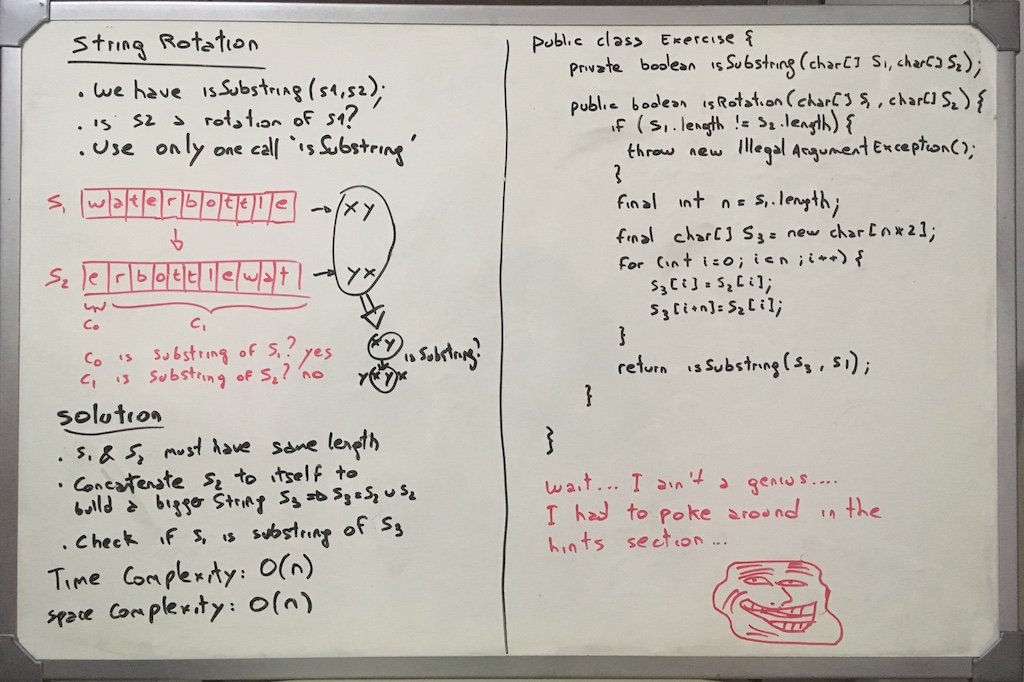 String Rotation
. We have isSubstring(s1,s2);
. is s2 a rotation of s1?
. Use only one call 'isSubstring'
S1 waterbottle → XY
S2 erbottlewat → YX
C0 C1
C0 is substring of S1? yes
C1 is substring of S2? no
XY isSubstring?
YXYX
Solution
. S1 & S2 must have same length
. Concatenate S2 to itself to
build a bigger String S3 => S3=S2 ∪ S2
. Check if S1 is substring of S3
Time Complexity: O(n)
space complexity: O(n)
public class Exercise {
private boolean isSubstring(char[] S1, char[] S2);
public boolean isRotation(char[] S1, char[] S2) {
if (S1.length != S2.length) {
throw new IllegalArgumentException();
}
final int n = S1.length;
final char[] S3 = new char[n*2];
for (int i=0; i<n ;i++) {
S3[i]=S2[i];
S3[i+n]=S2[i];
}
return isSubstring(S3, S1);
}
}
wait... I ain't a genius....
I had to poke around in the
hints section...